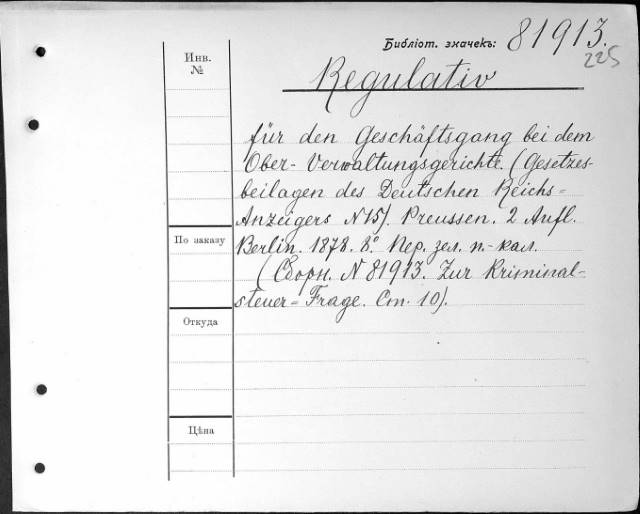 Библіот. значекъ: 81913.
225
Инв.
№
Regulativ
für den Geschäftsgang bei dem
Ober-Verwaltungsgerichte. (Gesetzes-
beilagen des Deutschen Reichs=
Anzeigers N15). Preussen. 2 Aufl.
По заказу
Berlin. 1878. 8° Пер. зел. п.-кал.
(Сборн. N 81913. Zur Kriminal-
steuer=Frage. Ст. 10).
Откуда
Цѣна